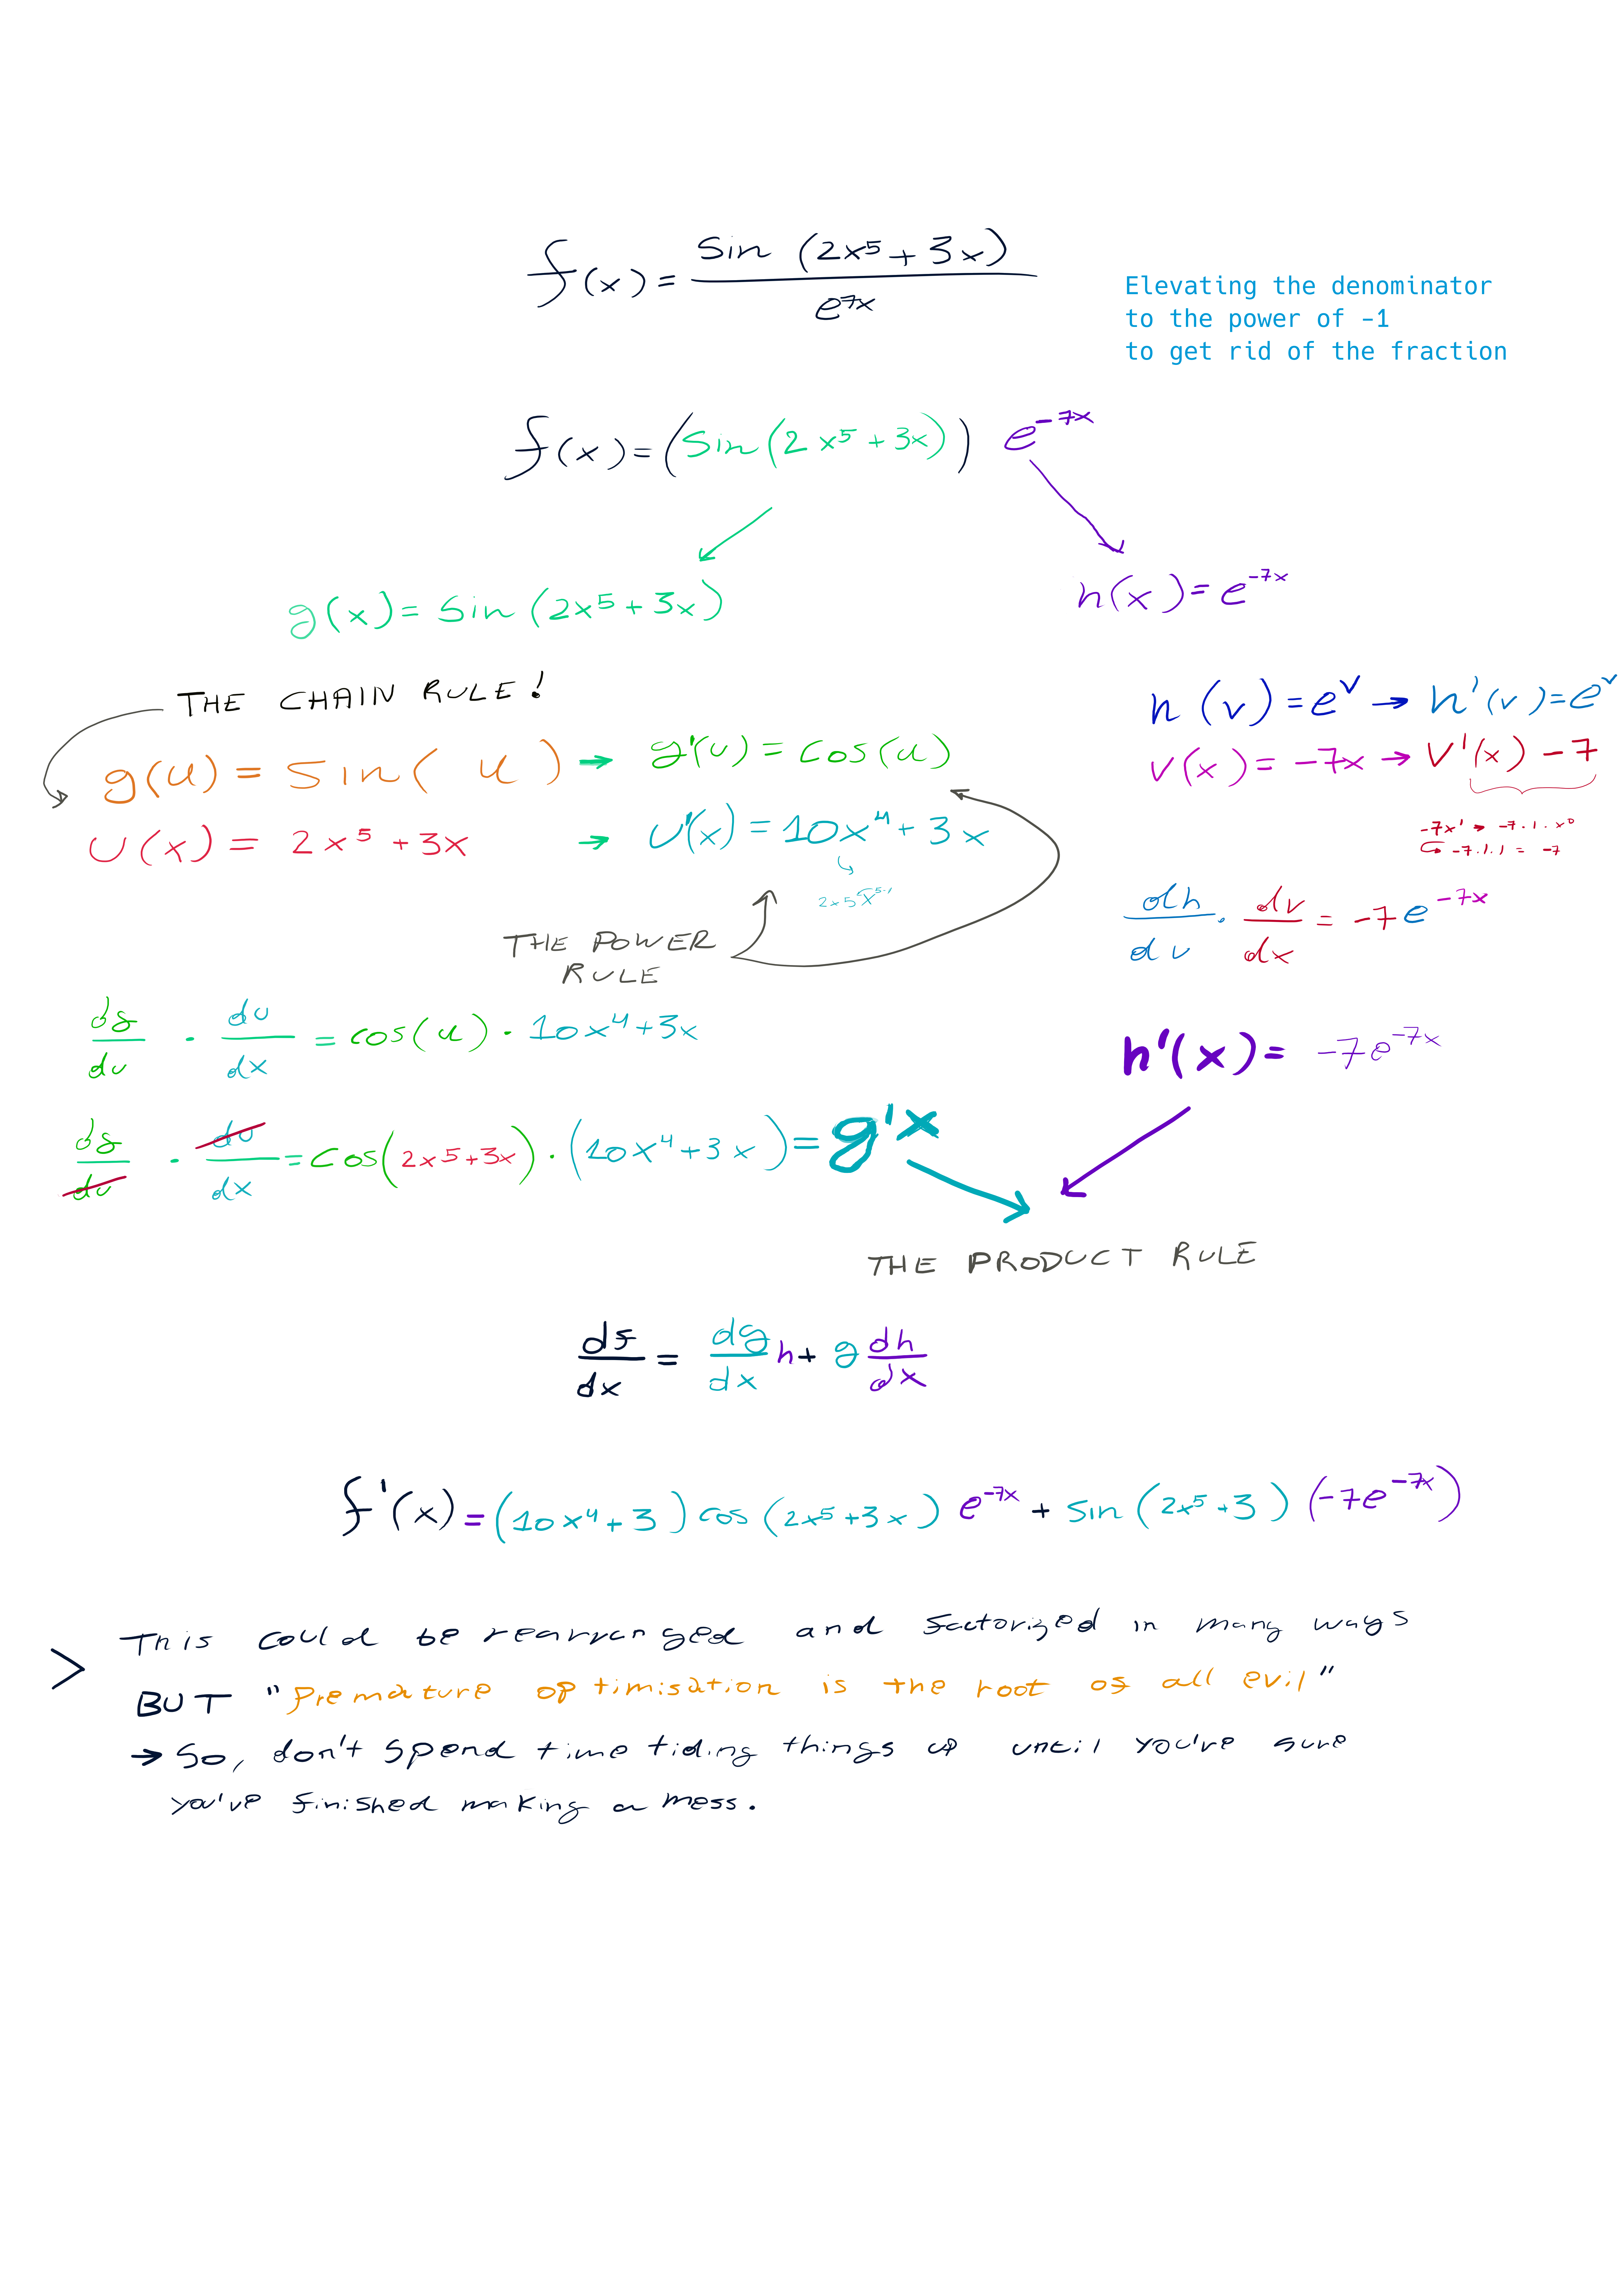 f(x) = sin (2x⁵ + 3x) / e⁷ˣ
Elevating the denominator
to the power of -1
to get rid of the fraction
f(x) = (sin (2x⁵ + 3x)) e⁻⁷ˣ
g(x) = sin (2x⁵ + 3x)
h(x) = e⁻⁷ˣ
THE CHAIN RULE!
g(u) = sin( u ) → g'(u) = cos(u)
u(x) = 2x⁵ + 3x → u'(x) = 10x⁴ + 3x
2×5x⁵⁻¹
THE POWER
RULE
dg/du · du/dx = cos(u) · 10x⁴ + 3x
dg/du · du/dx = cos(2x⁵+3x) · (10x⁴ + 3x) = g'x
h(v) = eᵛ → h'(v) = eᵛ
v(x) = -7x → v'(x) -7
-7x¹ → -7·1·x⁰
↪ -7·1·1 = -7
dh/dv · dv/dx = -7e⁻⁷ˣ
h'(x) = -7e⁻⁷ˣ
THE PRODUCT RULE
df/dx = dg/dx h + g dh/dx
f'(x) = (10x⁴ + 3) cos (2x⁵ + 3x) e⁻⁷ˣ + sin (2x⁵ + 3) (-7e⁻⁷ˣ)
> This could be rearranged and factorized in many ways
BUT "Premature optimisation is the root of all evil"
→ So, don't spend time tiding things up until you're sure
you've finished making a mess.